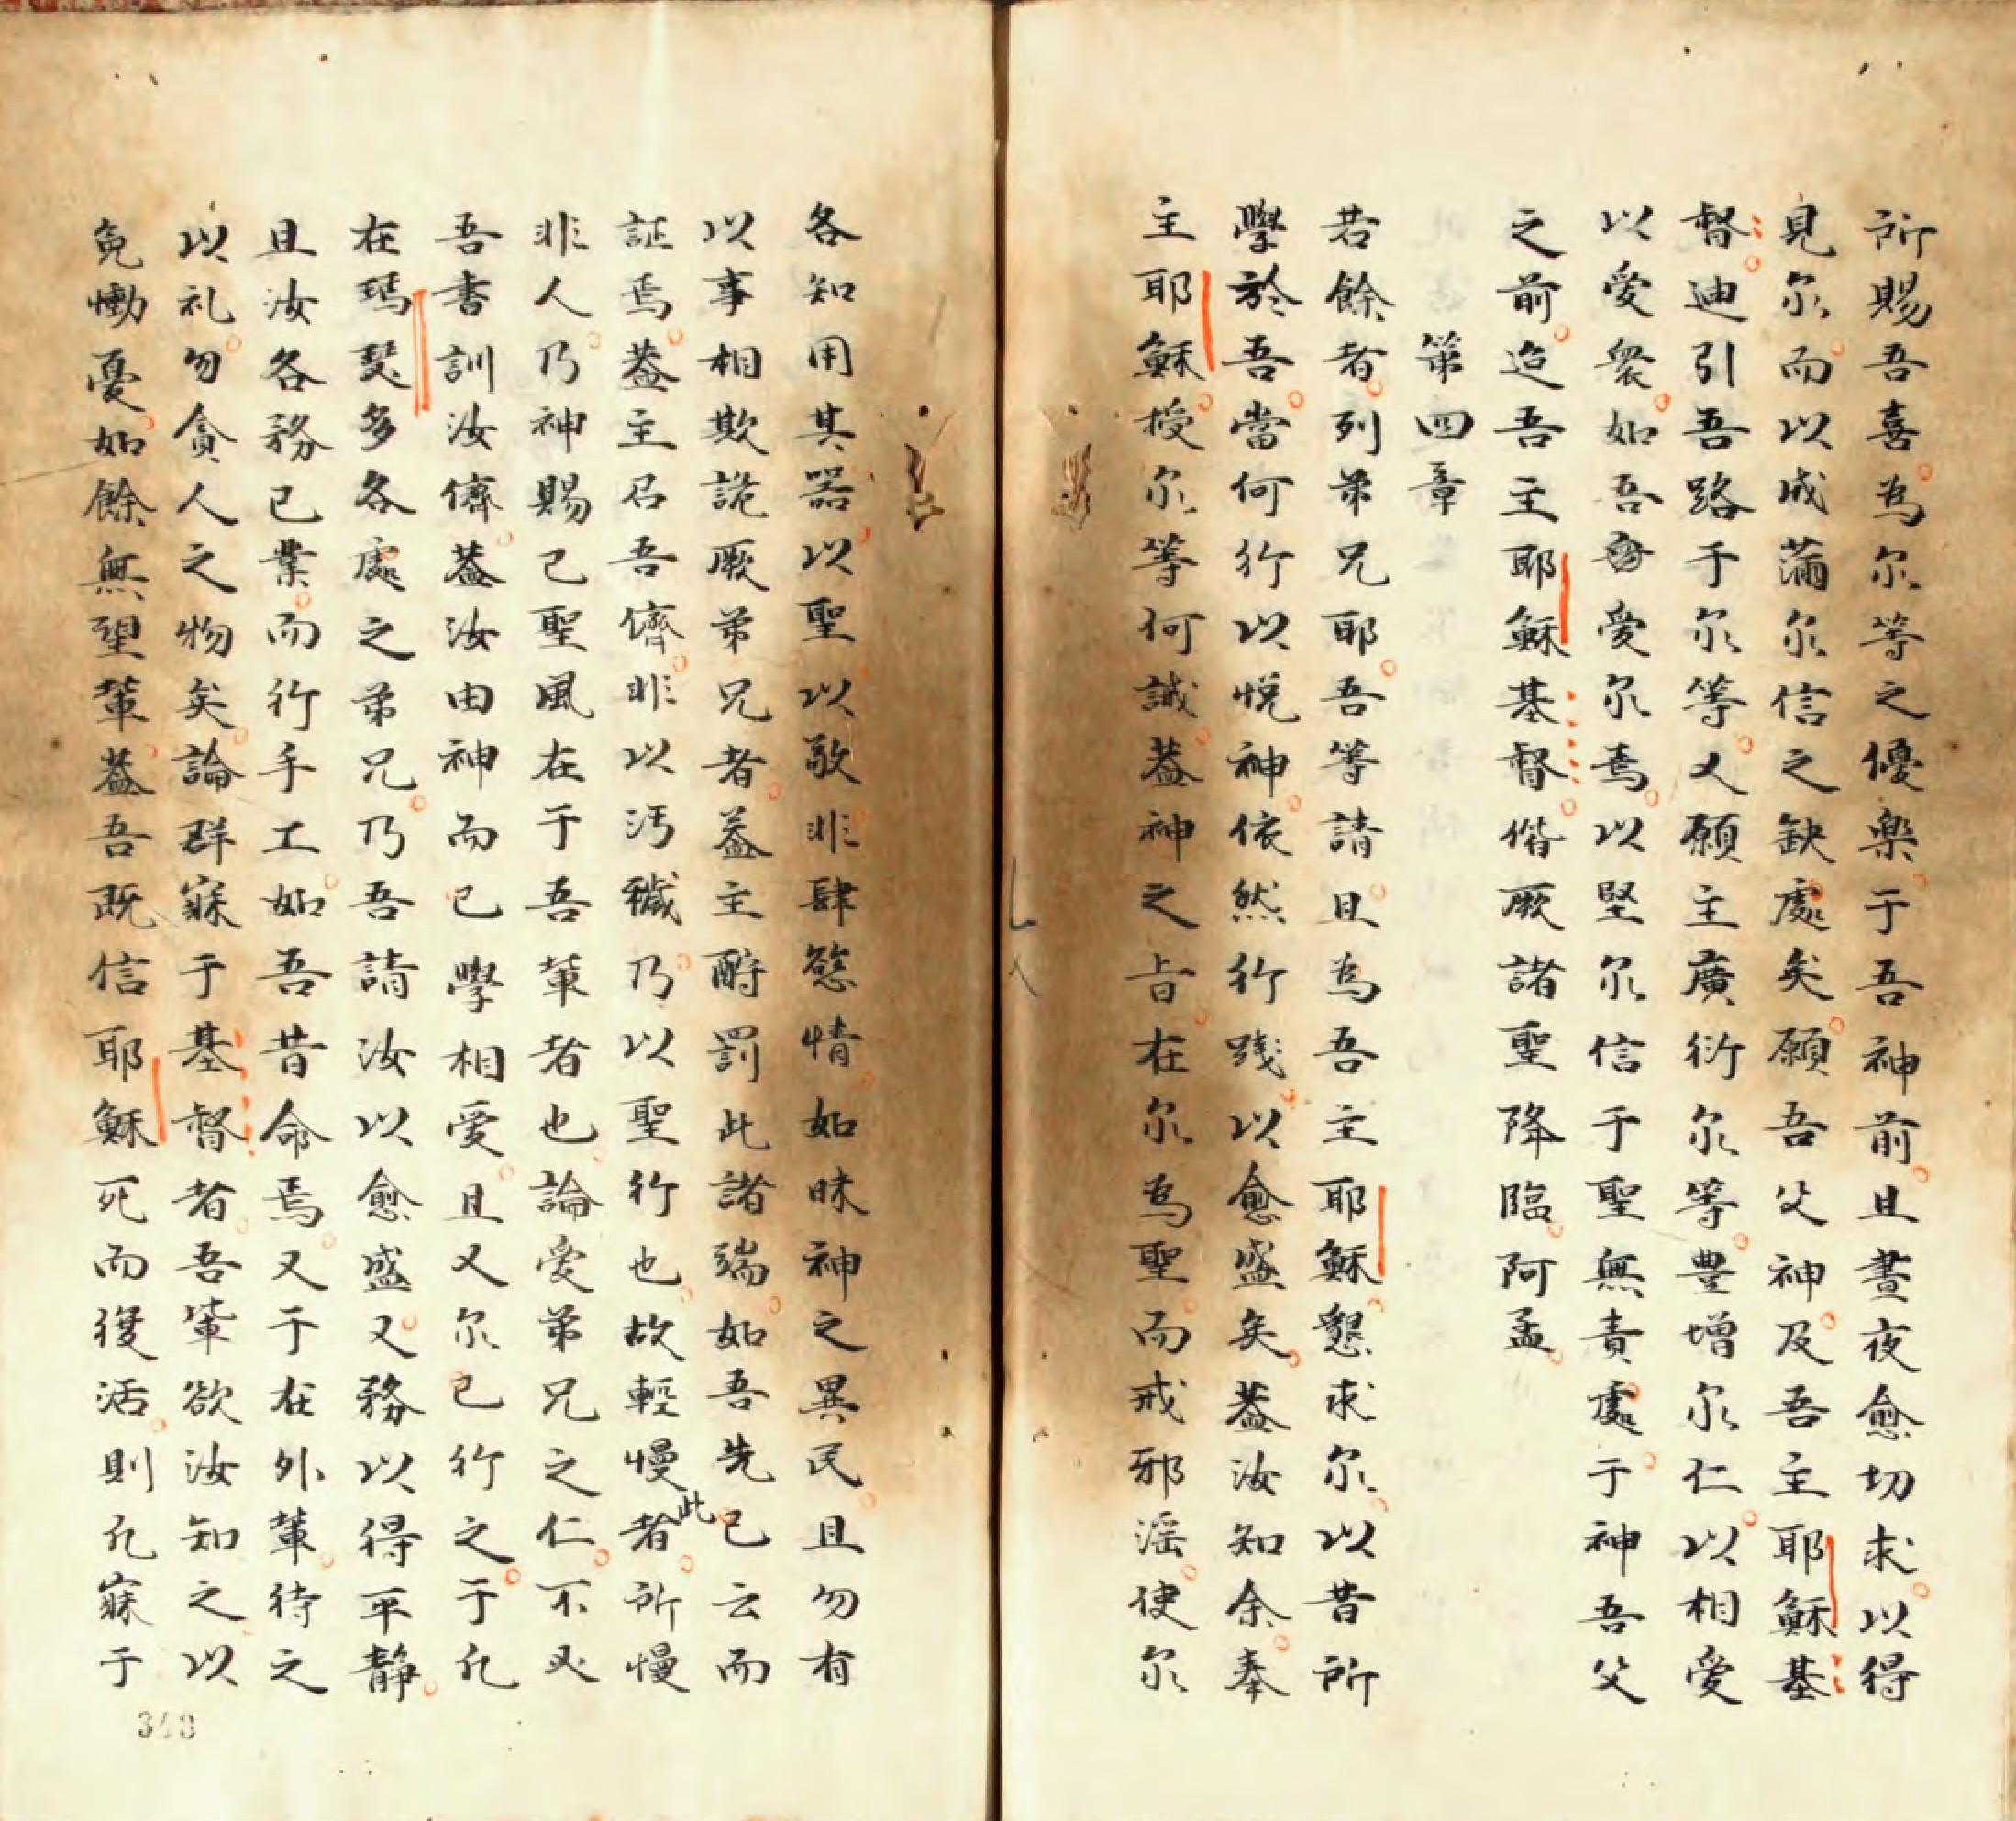 所賜吾喜為尔等之優樂于吾神前且晝夜愈切求以得
見尔而以成滿尔信之缺處矣願吾父神及吾主耶穌基
督迪引吾路于尔等又願主廣衍尔等豊增尔仁以相愛
以愛衆如吾𠇍愛尔焉以堅尔信于聖無責處于神吾父
之前迨吾主耶穌基督偕厥諸聖降臨阿孟
第四章
若餘者列弟兄耶吾等請且為吾主耶穌懇求尔以昔所
學於吾當何行以悅神依然行踐以愈盛矣葢汝知余奉
主耶穌授尔等何誡葢神之旨在尔為聖而戒邪滛使尔
各知用其器以聖以敬非肆慾情如昧神之異民且勿有
以事相欺詭厥弟兄者葢主酧罰此諸端如吾先已云而
証焉葢主召吾儕非以汚穢乃以聖行也故輕慢此者所慢
非人乃神賜己聖風在于吾軰者也論愛弟兄之仁不必
吾書訓汝儕葢汝由神而已學相愛且又尔已行之于凡
在瑪瑟多各處之弟兄乃吾請汝以愈盛又務以得平靜
且汝各務己業而行手工如吾昔命焉又于在外軰待之
以礼勿貪人之物矣論群寐于基督者吾軰欲汝知之以
免慟憂如餘無望軰葢吾既信耶穌死而復活則凡寐于
348